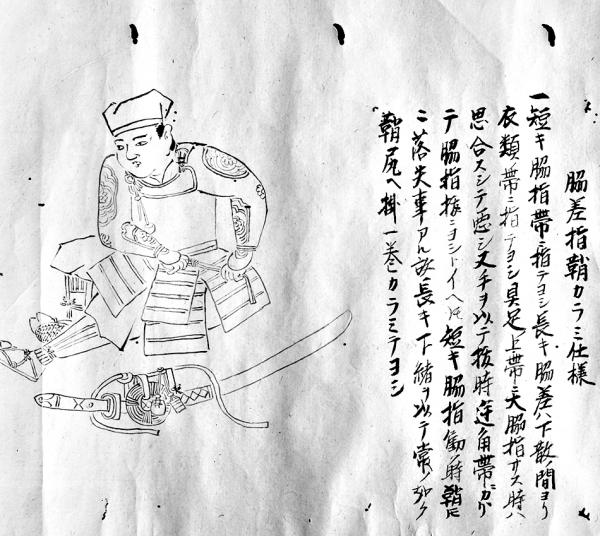 脇差指鞘カラミ仕様
一短キ脇指帯ニ指テヨシ長キ脇差ハ下散ノ間ヨリ
衣類ノ帯ニ指テヨシ具足上帯ニ大脇指サス時ハ
思合スシテ悪シ又チヲ以テ抜時逆角帯ニカヽリ
テ脇指抜ニヨシトイヘ𪜈短キ脇指動ノ時鞘𪜈
ニ落失事アル故長キ下緒ヲ以テ常ノ如ク
鞘尻ヘ掛一巻カラミテヨシ